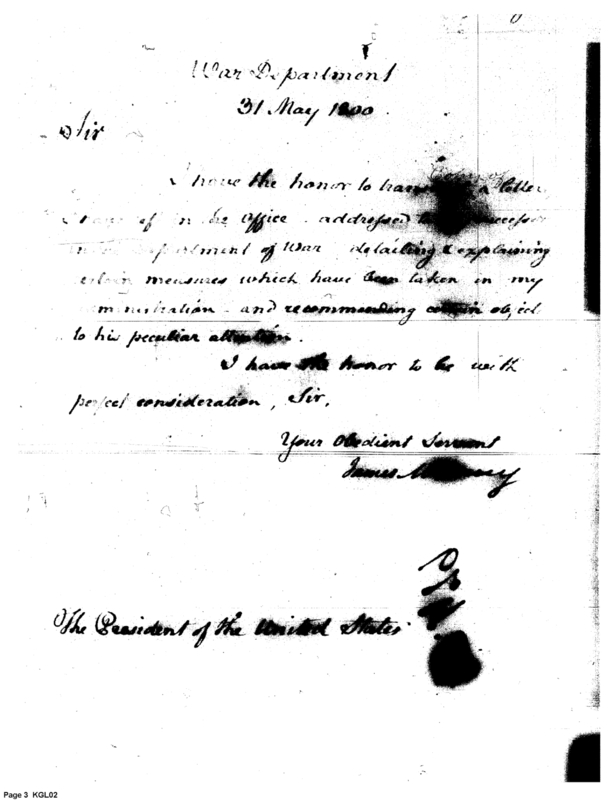 War Department
31 May 1800.
Sir
I have the honor to a letter
in the office addressed
of War detailing & explaining
measures which have been taken in my
and recommending certain
to his peculiar attention.
I have the honor to be with
perfect consideration, Sir,
Your Obedient Servant
James
The President of the United States
Page 3 KGL02